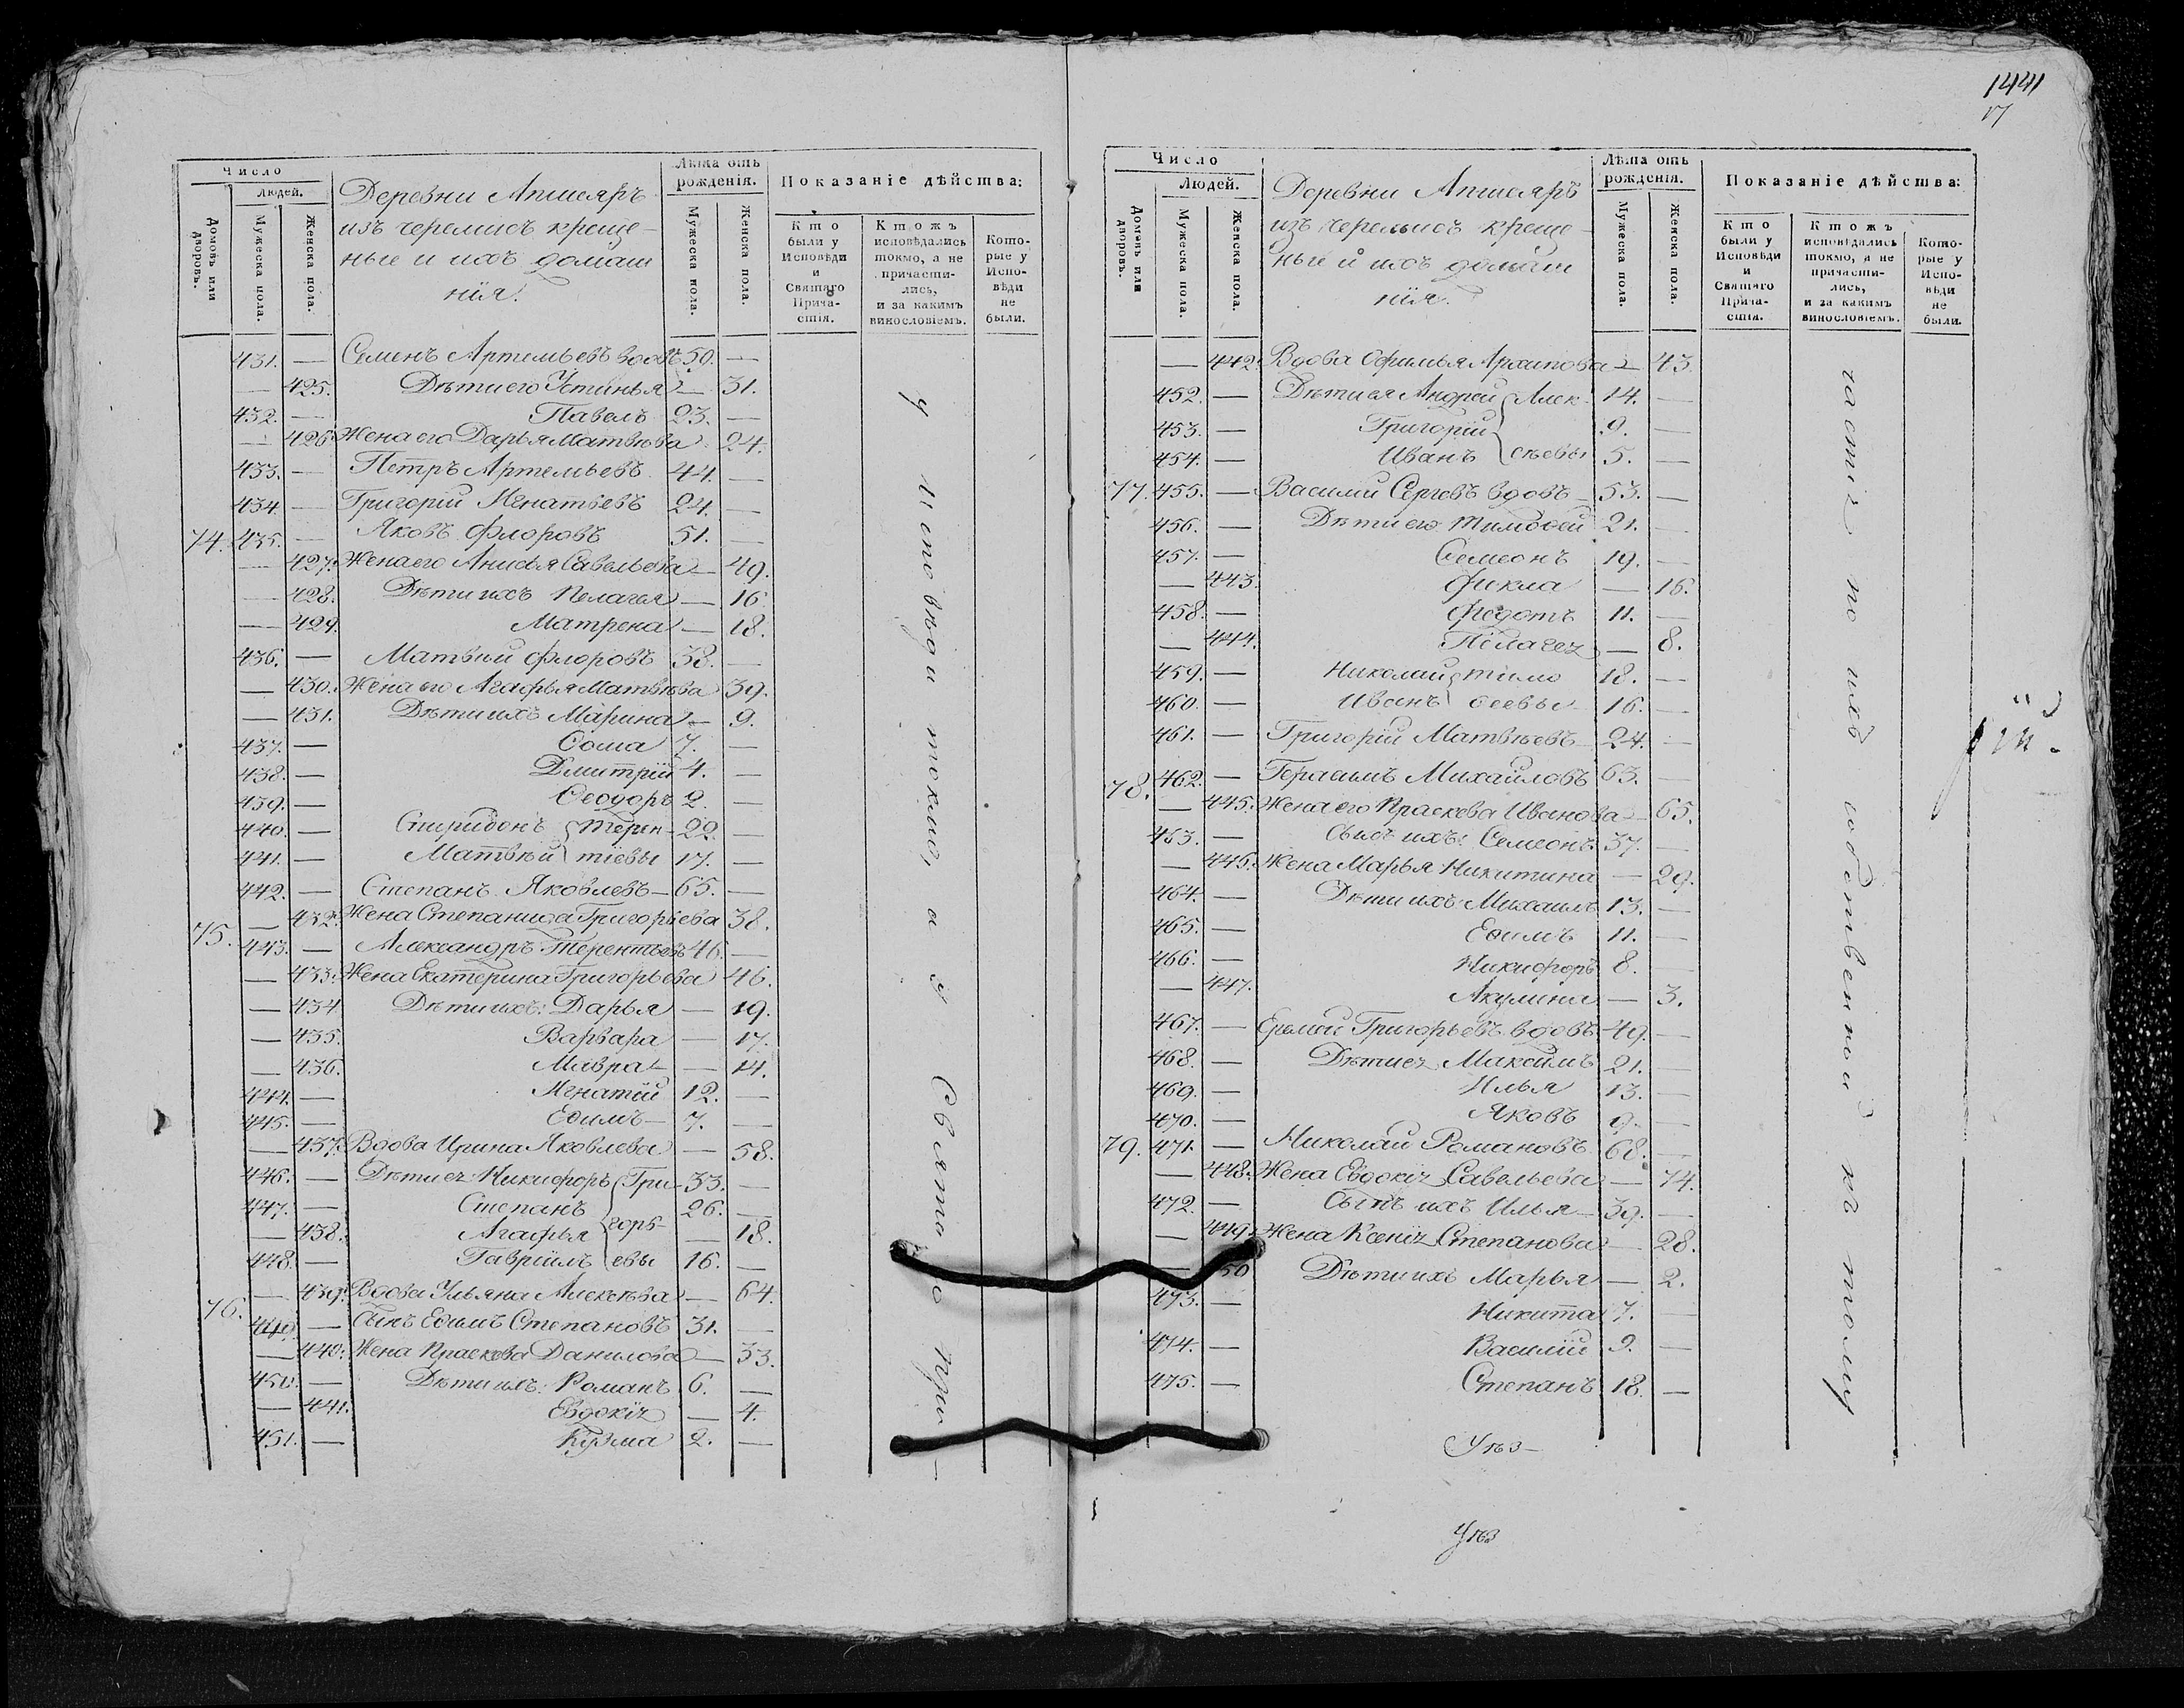 1441
17
Число
Людей.
Домовъ или дворовъ.
Мужеска пола.
Женска пола.
Деревни Апшеяръ
изъ черемисъ креще-
ные и ихъ домаш
нiя.
Лѣта отъ рожденія.
Мужеска пола.
Женска пола.
Показаніе дѣйства:
Кто были у Исповѣди и Святаго Причастія.
Ктожъ исповѣдались токмо, а не причастились, и за какимъ винословіемъ.
Которые у Исповѣди не были.
431. — Семенъ Артемьевъ вдовъ 50. —
— 425. Дѣти его Устинья — 31.
432. — Павелъ 23. —
— 426 Жена его Дарья Матвѣева 24.
433. — Петръ Артемьевъ 44. —
434. — Григорій Игнатьевъ 24. —
74. 435. — Яковъ Флоровъ 51. —
— 427. Жена его Анисья Савельева — 49.
— 428. Дѣти ихъ Пелагея — 16
— 429. Матрена — 18.
436. — Матвѣй Флоровъ 38. —
— 430. Жена его Агафья Матвѣева 39.
— 431. Дѣти ихъ Марина — 9.
437. — Ѳома 7. —
438. — Дмитрій 4. —
439. — Ѳеодоръ 2. —
440. — Спиридонъ Терен- 22. —
441. — Матвѣй тіевы 17. —
442. — Степанъ Яковлевъ — 65. —
— 432. Жена Степанида Григорьева 38.
75. 443. — Александръ Терентьевъ 46. —
— 433. Жена Екатерина Григорьева 46.
— 434. Дѣти ихъ: Дарья — 19.
— 435. Варвара — 17.
— 436. Мавра — 14.
444. — Игнатій 12. —
445. — Еѳимъ — 7. —
— 437. Вдова Ирина Яковлева — 58.
446. — Дѣти ея Никифоръ Гри- 33. —
447. — Степанъ 26. —
— 438. Агафья горь- — 18.
448. — Гавріилъ евы 16. —
— 439. Вдова Ульяна Алексѣева — 64.
76. 449. — Сынъ Еѳимъ Степановъ 31. —
— 440. Жена Праскева Данилова — 33.
450. — Дѣти ихъ: Романъ 6. —
— 441. Евдокія — 4.
451. — Кузма 2. —
у исповѣди токмо, а у Святаго При-
Число
Людей.
Домовъ или дворовъ.
Мужеска пола.
Женска пола.
Деревни Апшеяръ
изъ черемисъ креще-
ные и ихъ домаш
нiя.
Лѣта отъ рожденія.
Мужеска пола.
Женска пола.
Показаніе дѣйства:
Кто были у Исповѣди и Святаго Причастія.
Ктожъ исповѣдались токмо, а не причастились, и за какимъ винословіемъ.
Которые у Исповѣди не были.
— 442. Вдова Офимья Архипова — 43.
452. — Дѣти ея Андрей Алек- 14. —
453. — Григорій 9. —
454. — Иванъ сѣевы 5. —
77. 455. — Василій Сергѣевъ вдовъ — 53. —
456. — Дѣти его Тимоѳей 21. —
457. — Семеонъ 19. —
— 443. Фикла — 16.
458. — Федотъ 11. —
— 444. Пелагея — 8.
459. — Николай Тимо 18. —
460. — Иванъ ѳеевы 16. —
461. — Григорій Матвѣевъ 24. —
78. 462. — Герасимъ Михайловъ 63. —
— 445. Жена его Праскева Иванова — 65.
463. — Сынъ ихъ: Семеонъ 37. —
— 446. Жена Марья Никитина — 29.
464. — Дѣти ихъ: Михаилъ 13. —
465. — Еѳимъ 11. —
466. — Никифоръ 8. —
— 447. Акулина — 3.
467. — Еремѣй Григорьевъ вдовъ 49. —
468. — Дѣти ея Максимъ 21. —
469. — Илья 13. —
470. — Яковъ 9. —
79. 471. — Николай Романовъ 68. —
— 448. Жена Евдокія Савельева — 74.
472. — Сынъ ихъ Илья 39. —
— 449. Жена Ксенія Степанова — 28.
— 50 Дѣти ихъ Марья — 2.
473. — Никита 7. —
474. — Василій 9. —
475. — Степанъ 18. —
частія по ихъ собственной къ тому
Уѣз-
Уѣз